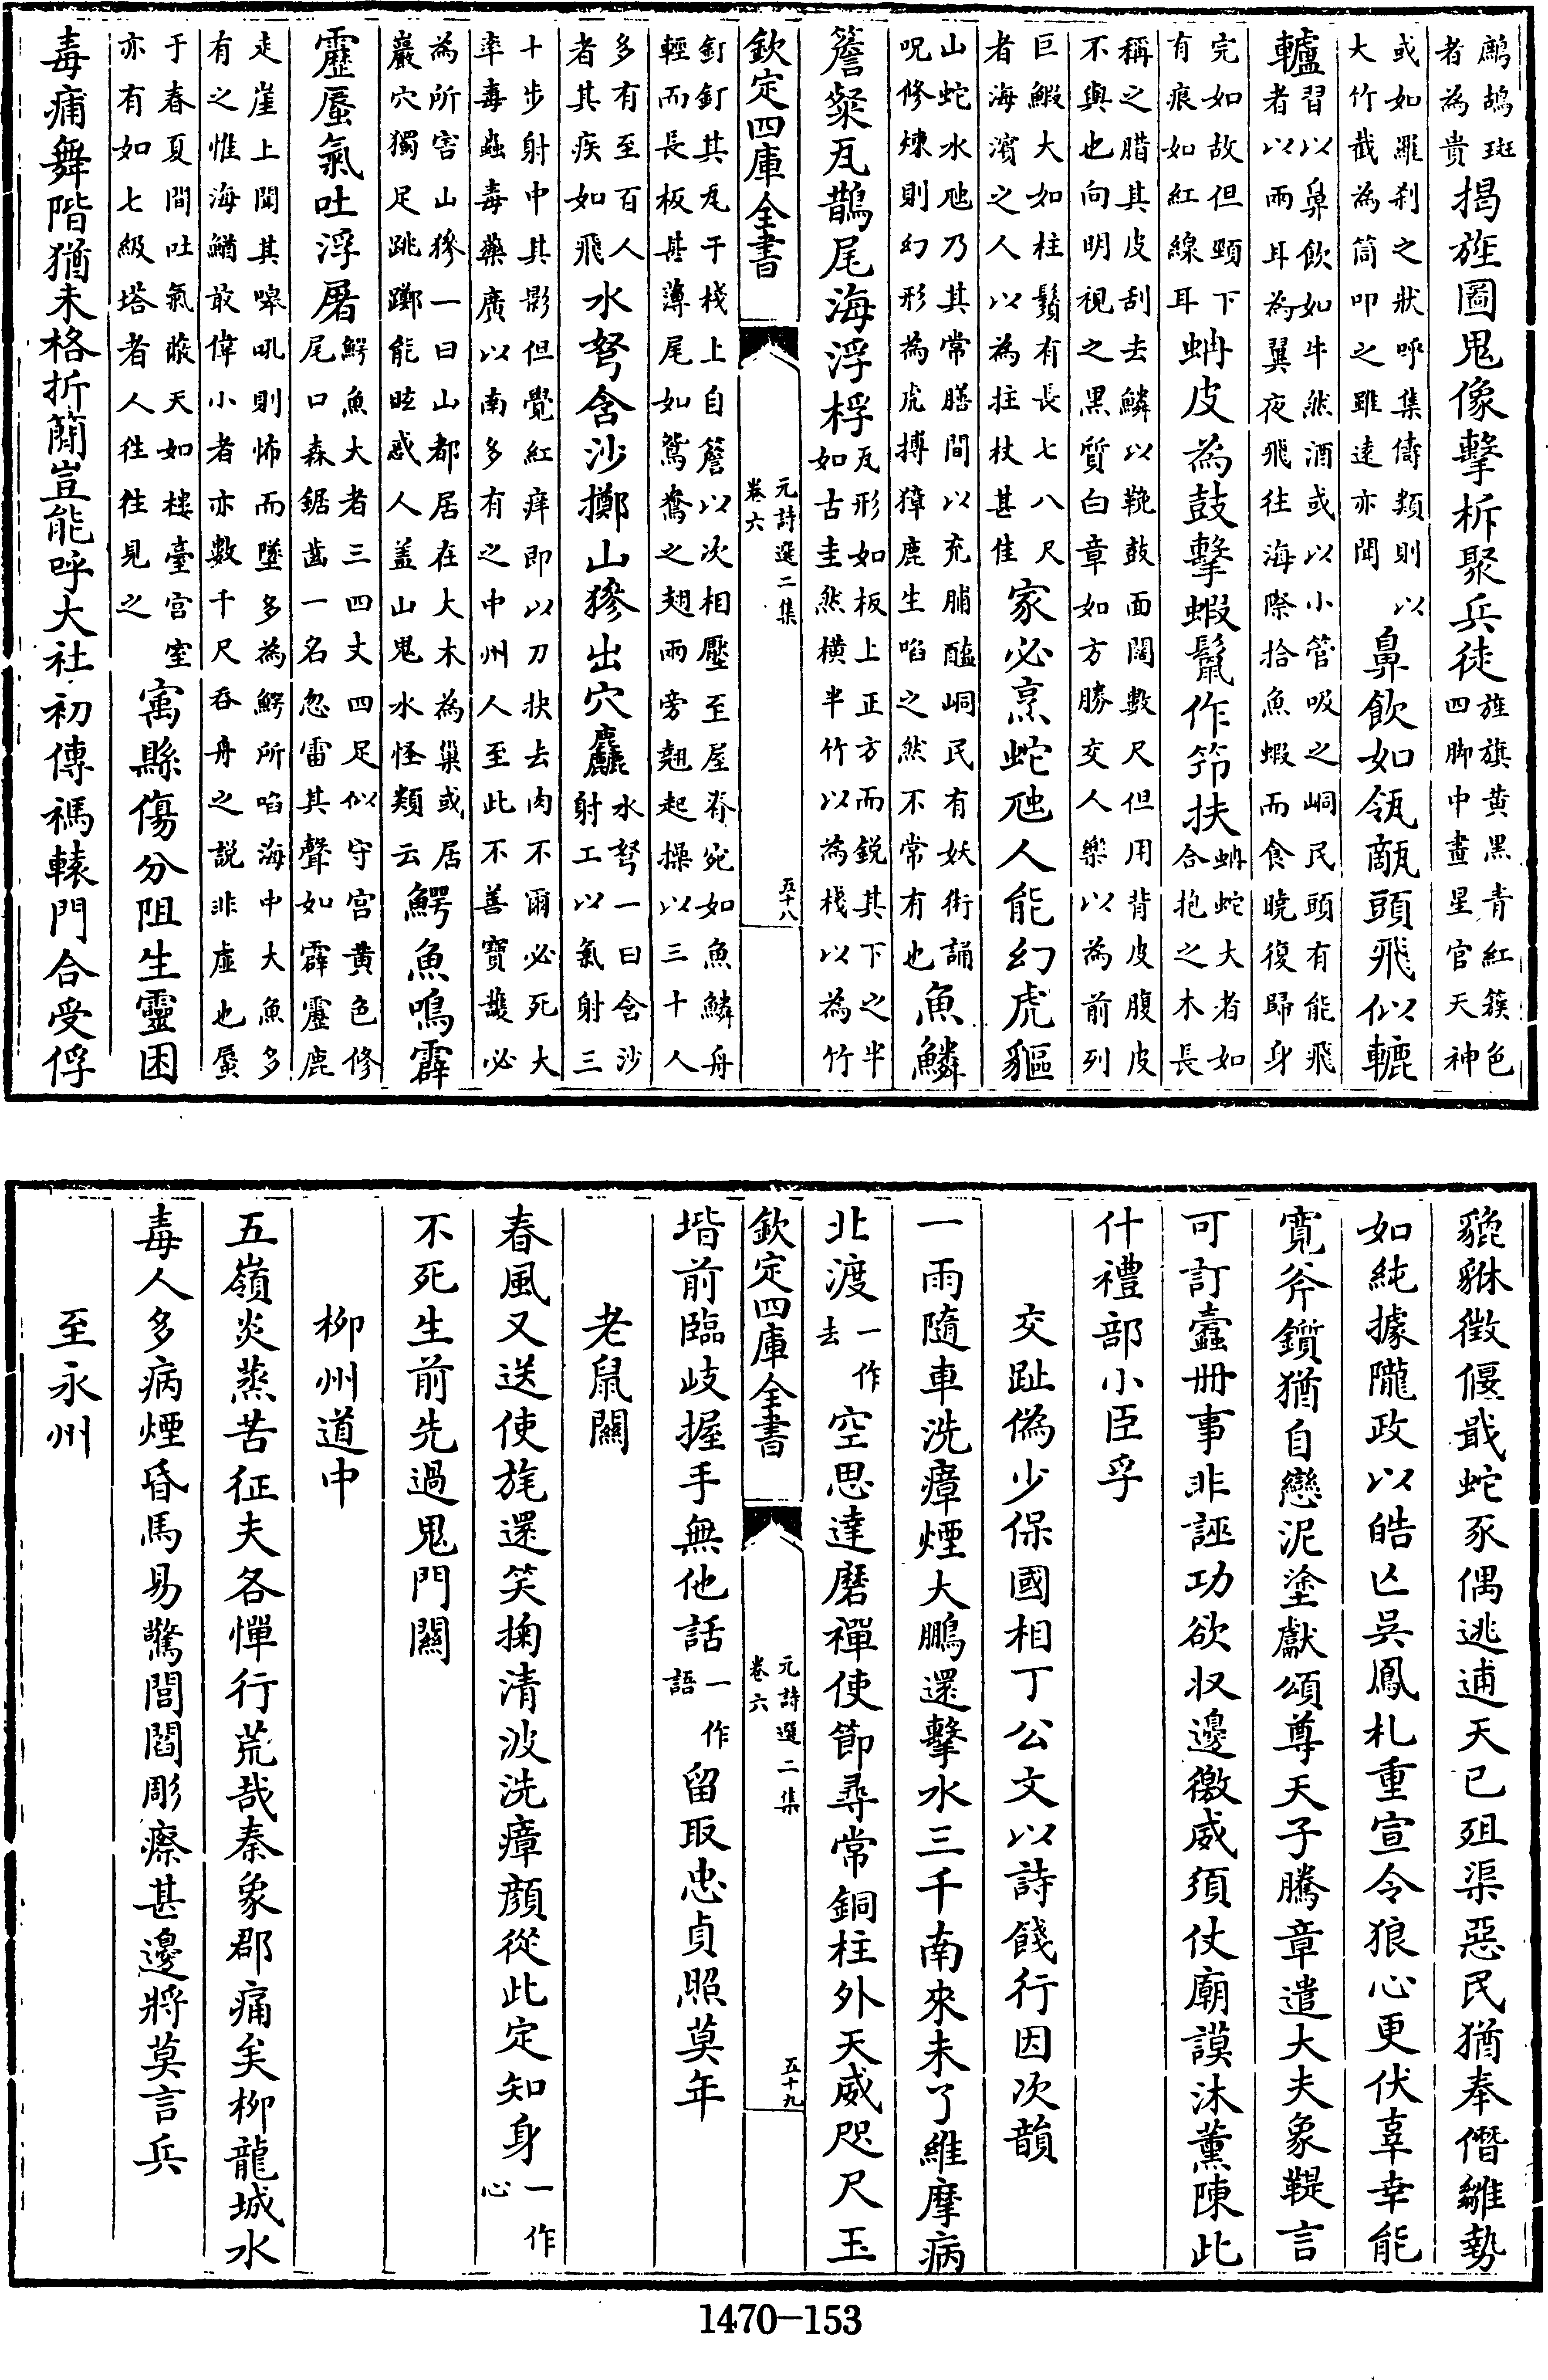 鷓鴣斑
者為貴
揭旌圖鬼像擊柝聚兵徒
旌旗黃黑青紅簇色
四脚中畫星官天神
或如羅刹之狀呼集儔類則以
大竹截為筒叩之雖遠亦聞
鼻飲如瓴甋頭飛似轆
轤
習以鼻飲如牛然酒或以小管吸之峒民頭有能飛
者以兩耳為翼夜飛往海際拾魚蝦而食曉復歸身
完如故但頸下
有痕如紅線耳
蚺皮為鼓擊蝦鬚作笻扶
蚺蛇大者如
合抱之木長
稱之腊其皮刮去鱗以鞔鼓面闊數尺但用背皮腹皮
不與也向明視之黑質白章如方勝交人樂以為前列
巨鰕大如柱鬚有長七八尺
者海濱之人以為拄杖甚佳
家必烹蛇虺人能幻虎貙
山蛇水虺乃其常膳間以充脯醢峒民有妖術誦
呪修煉則幻形為虎搏獐鹿生啗之然不常有也
魚鱗
簷粲瓦鵲尾海浮桴
瓦形如板上正方而銳其下之半
如古圭然橫半竹以為棧以為竹
欽定四庫全書
元詩選二集
卷六
五十八
釘釘其瓦于棧上自簷以次相壓至屋脊宛如魚鱗舟
輕而長板甚薄尾如鴛鴦之翅兩旁翹起操以三十人
多有至百人
者其疾如飛
水弩含沙擲山㺑出穴麤
水弩一曰含沙
射工以氣射三
十步射中其影但覺紅痒即以刀抉去肉不爾必死大
率毒蟲毒藥廣以南多有之中州人至此不善寶護必
為所害山㺑一曰山都居在大木為巢或居
巖穴獨足跳躑能眩惑人盖山鬼水怪類云
鰐魚鳴霹
靂蜃氣吐浮屠
鰐魚大者三四丈四足似守宮黃色修
尾口森鋸齒一名忽雷其聲如霹靂鹿
走崖上聞其嗥吼則怖而墜多為鰐所啗海中大魚多
有之惟海鰌最偉小者亦數千尺吞舟之說非虛也蜃
于春夏間吐氣曖天如樓臺宮室
亦有如七級塔者人往往見之
寓縣傷分阻生靈困
毒痡舞階猶未格折簡豈能呼大社初傳禡轅門合受俘
貔貅徵偃戢蛇豕偶逃逋天已殂渠惡民猶奉僭雛勢
如純據隴政以皓亡吳鳳札重宣令狼心更伏辜幸能
寛斧鑕猶自戀泥塗獻頌尊天子騰章遣大夫象鞮言
可訂蠧冊事非誣功欲収邊徼威須仗廟謨沐薰陳此
什禮部小臣孚
交趾偽少保國相丁公文以詩餞行因次韻
一雨隨車洗瘴煙大鵬還擊水三千南來未了維摩病
北渡
一作
去
空思達磨禪使節尋常銅柱外天威咫尺玉
欽定四庫全書
元詩選二集
卷六
五十九
堦前臨岐握手無他話
一作
語
留取忠貞照莫年
老鼠關
春風又送使旄還笑掬清波洗瘴顔從此定知身
一作
心
不死生前先過鬼門關
柳州道中
五嶺炎蒸苦征夫各憚行荒哉秦象郡痛矣柳龍城水
毒人多病煙昏馬易驚閭閻彫瘵甚邊將莫言兵
至永州
1470-153